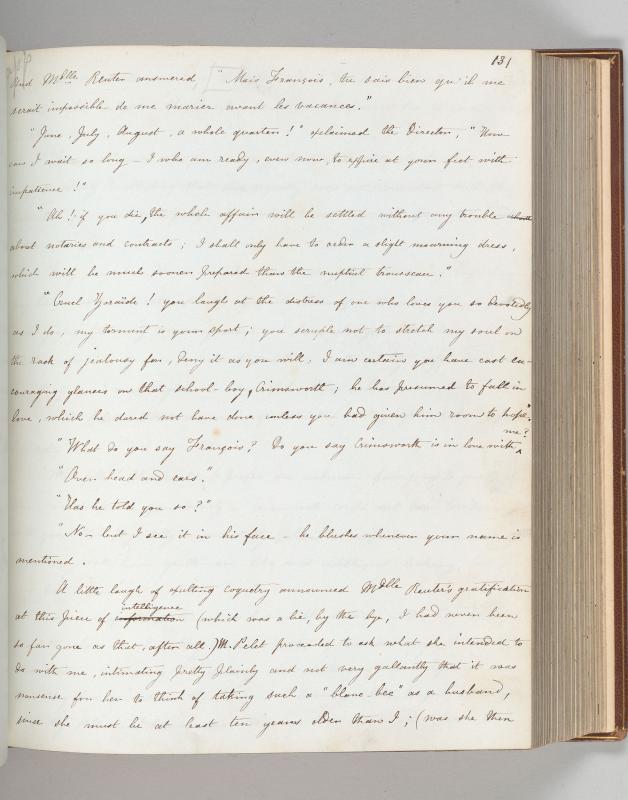 131
And Mdlle Reuter answered, "Mais François, tu sais bien qu'il me
serait impossible de me marier avant les vacances."
"June, July, August, a whole quarter!" exclaimed the Director, "How
can I wait so long – I who am ready, even now, to expire at your feet with
impatience!"
"Ah! if you die, the whole affair will be settled without any trouble
about notaries and contracts; I shall only have to order a slight mourning dress,
which will be much sooner prepared than the nuptial trousseau."
"Cruel Zoraïde! you laugh at the distress of one who loves you so devotedly
as I do, my torment is your sport; you scruple not to stretch my soul on
the rack of jealousy for, deny it as you will, I am certain you have cast en-
couraging glances on that school-boy, Crimsworth; he has presumed to fall in
love, which he dared not have done unless you had given him room to hope".
me?
"What do you say François? Do you say Crimsworth is in love with ^
"Over head and ears."
"Has he told you so?"
"No – but I see it in his face – he blushes whenever your name is
mentioned.
A little laugh of exulting coquetry announced Mdlle Reuter's gratification
intelligence
at this piece of information (which was a lie, by the bye, I had never been
so far gone as that, after all.) M. Pelet proceeded to ask what she intended to
do with me, intimating pretty plainly and not very gallantly that it was
nonsense for her to think of taking such a "blanc-bec" as a husband,
since she must be at least ten years older than I; (was she then